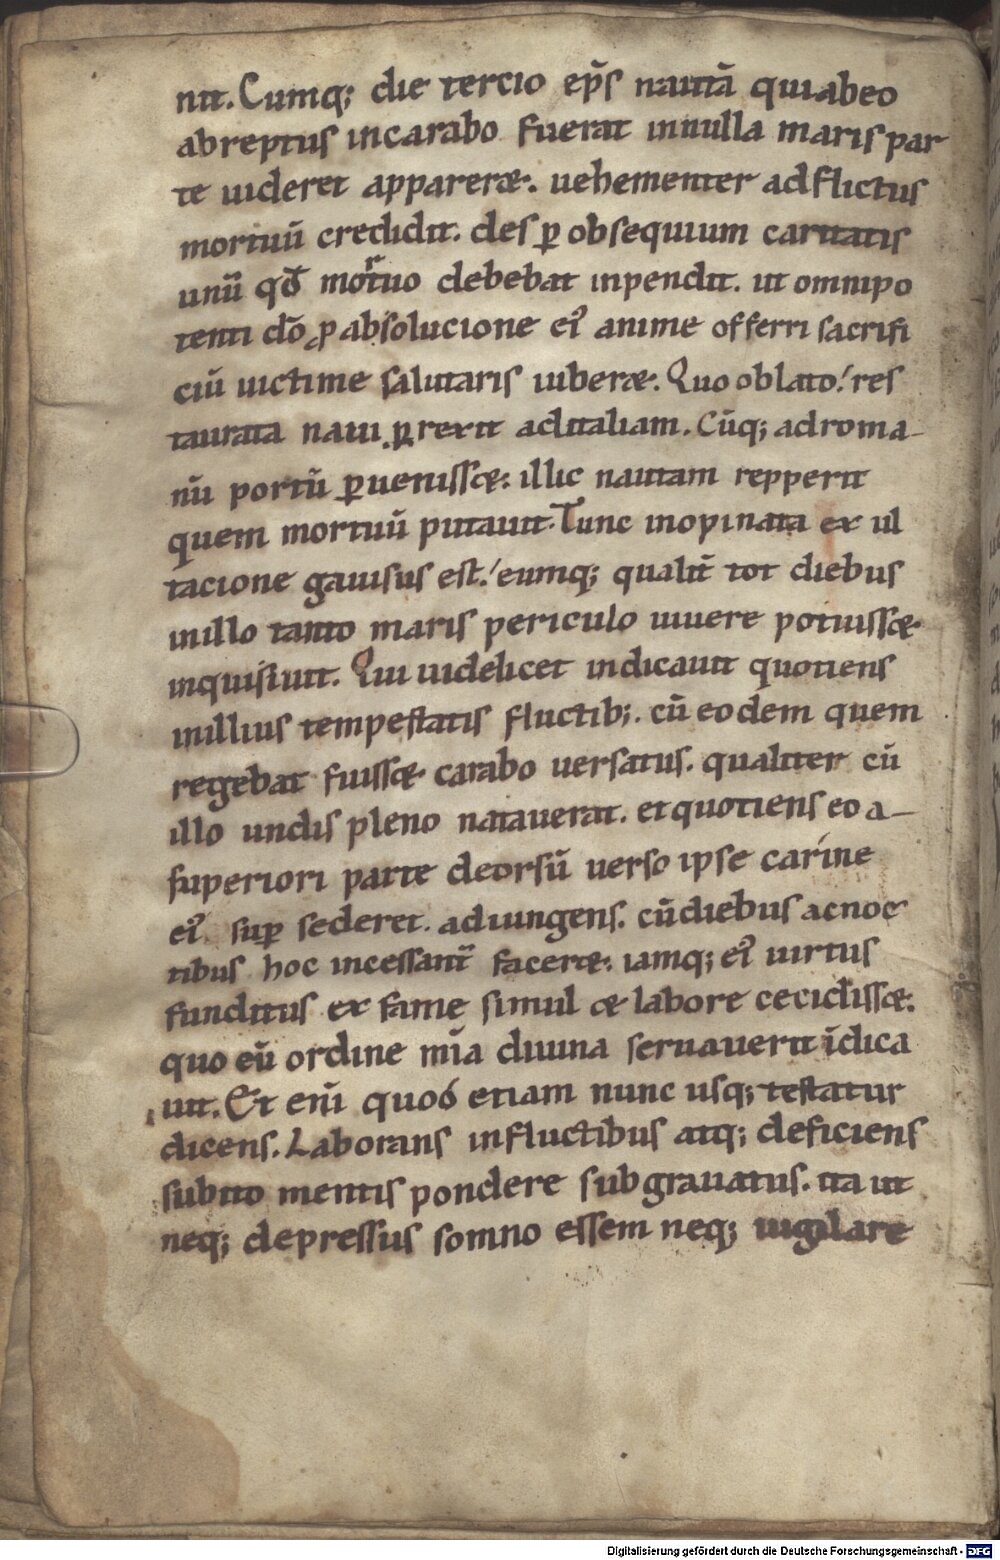 nit. Cumq; die tercio ep̄s nautā qui abeo
abreptus in carabo fuerat in nulla maris par
te uideret apparere. uehementer adflictus
mortuū credidit. des p̱ obsequium caritatis
unū qđ mortuo debebat inpendit. ut omnipo
tenti dō ꝓ absolucione ei' anime offerri sacrifi
ciū uictime salutaris iuberæ. Quo oblato! res
taurata naui ꝑrexit ad italiam. Cūq; ad roma
nū portū ꝑuenissæ: illic nautam repperit
quem mortuū putauit. Tunc inopinata ex ul
tacione gauisus est! eumq; qualit̄ tot diebus
in illo tanto maris periculo uiuere potuissæ
inquisiuit. Qui uidelicet indicauit quotiens
in illius tempestatis fluctib;. cū eodem quem
regebat fuissæ carabo uersatus. qualiter cū
illo undis pleno natauerat. et quotiens eo a
superiori parte deorsū uerso ipse carine
ei' suꝑ sederet. adiungens. cū diebus ac noc
tibus hoc incessant̄ faceræ. iamq; ei' uirtus
funditus ex fame simul æ labore cecidissæ.
quo eū ordine mīa diuina seruauerit īdica
uit. Et enī quod etiam nunc usq; testatur
dicens. Laborans in fluctibus atq; deficiens
subito mentis pondere sub grauatus. ita ut
neq; depressus somno essem neq; uigilare
Digitalisierung gefördert durch die Deutsche Forschungsgemeinschaft - DFG